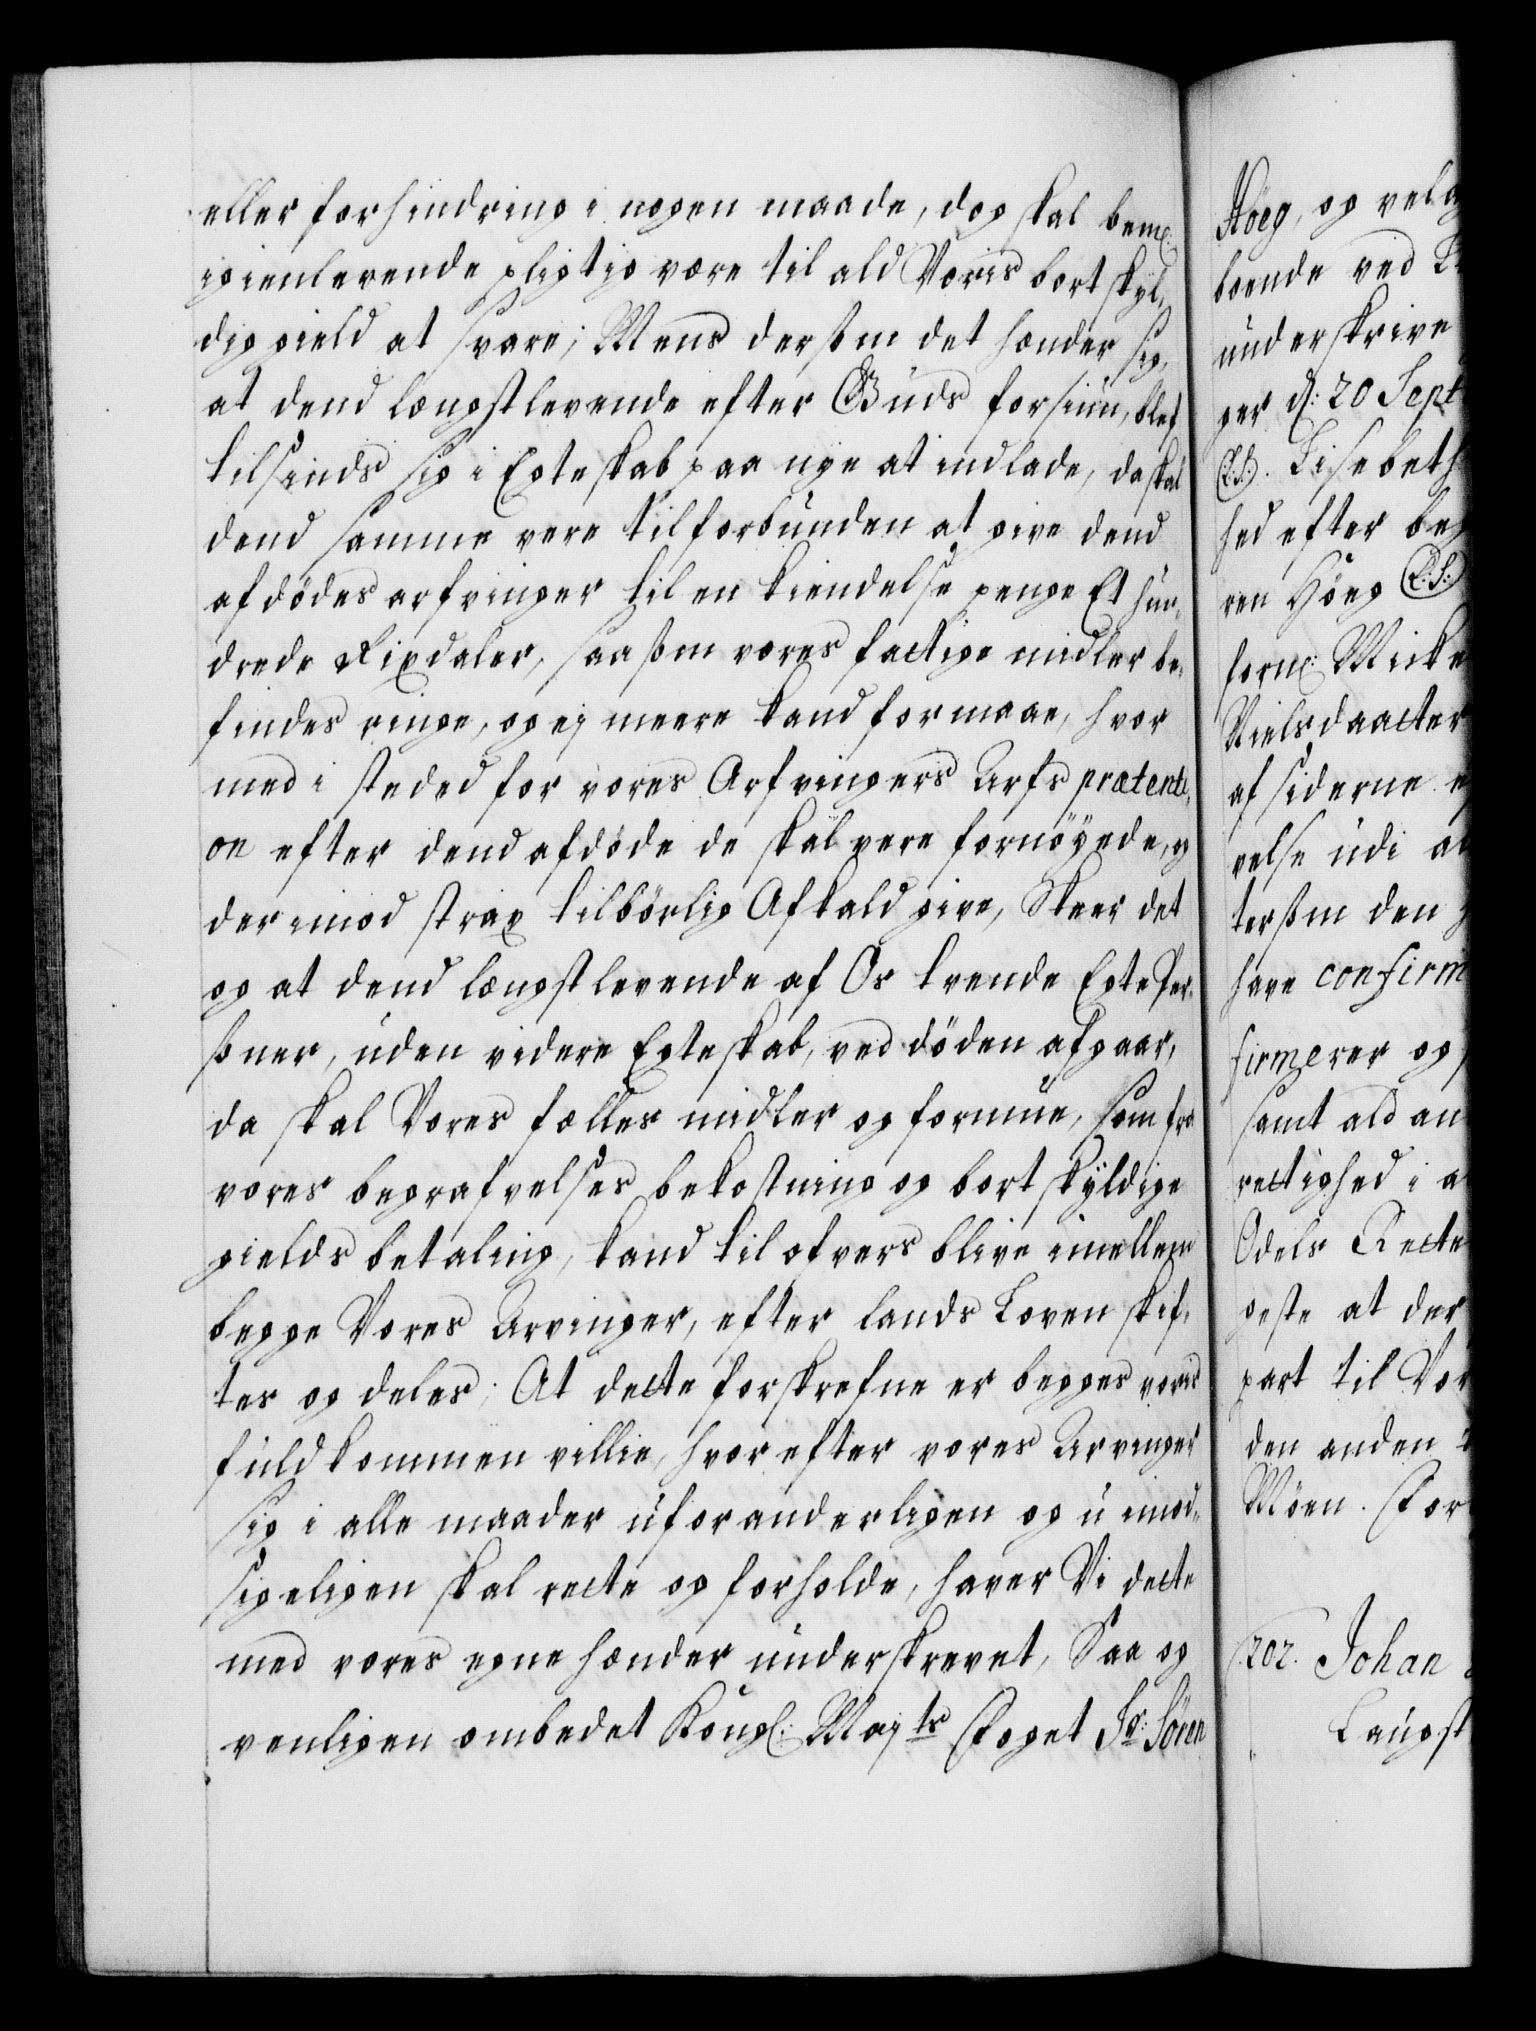 eller forhindring i nogen maade, dog skal bemte:
igienlevende pligtig være til ald Voris bort skyl,
dig gield at svare; Mens dersom det hænder sig,
at dend længstlevende efter Guds forsiun, blef
tilsinds sig i Egteskab paa nye at indlade, da skal
dend samme vere tilforbunden at give dend
afdödes arfvinger til en kiendelse penge Et hun,
drede Rixdaler, saasom vores fattige midler be,
findes ringe, og ej meere kand formaae, hvor
med i steded for vores Arfvingers Arfs prætenti,
on efter dend afdöde de skal vere fornöyede, og
derimod strax tilbörlig Afkald give, Skeer det
og at dend længstlevende af Os tvende Egte Per,
soner, uden videre Egteskab, ved döden afgaar,
da skal Vores fælles midler og formue, som fra
vores begrafvelses bekostning og bort skyldige
gields betaling, kand til ofvers blive imellem
begge Vores Arvinger, efter lands Loven skif,
tes og deles; At dette forskrefne er begges voris
fuldkommen villie, hvor efter vores Arvinger
sig i alle maader uforanderligen og u imod,
sigeligen skal rette og forholde, haver Vi dette
med vores egne hænder underskrevet, Saa og
venligen ombedet Kongl: Majts Foget Sr: Sören
Höeg, og vel
boende ved
underskrive
ger d: 20 Sept
(L.S.). Lisebeth
hed efter beg
ren Höeg (L.S.)
forne: Micke
Nielsdaatter
af siderne
velse udi al
tersom den
have confirm
firmerer og
samt ald an
rettighed i a
Odels Rette
geste at der
part til Vor
den anden
Möen. For
202. Johan
Laugst